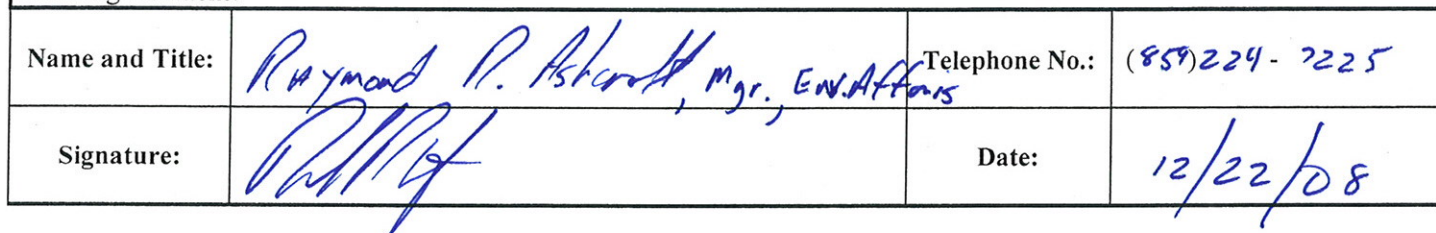 Name and Title: Raymond R. Ashcroft, Mgr., Env. Affairs Telephone No.: (859)224-7225
Signature: Date: 12/22/08